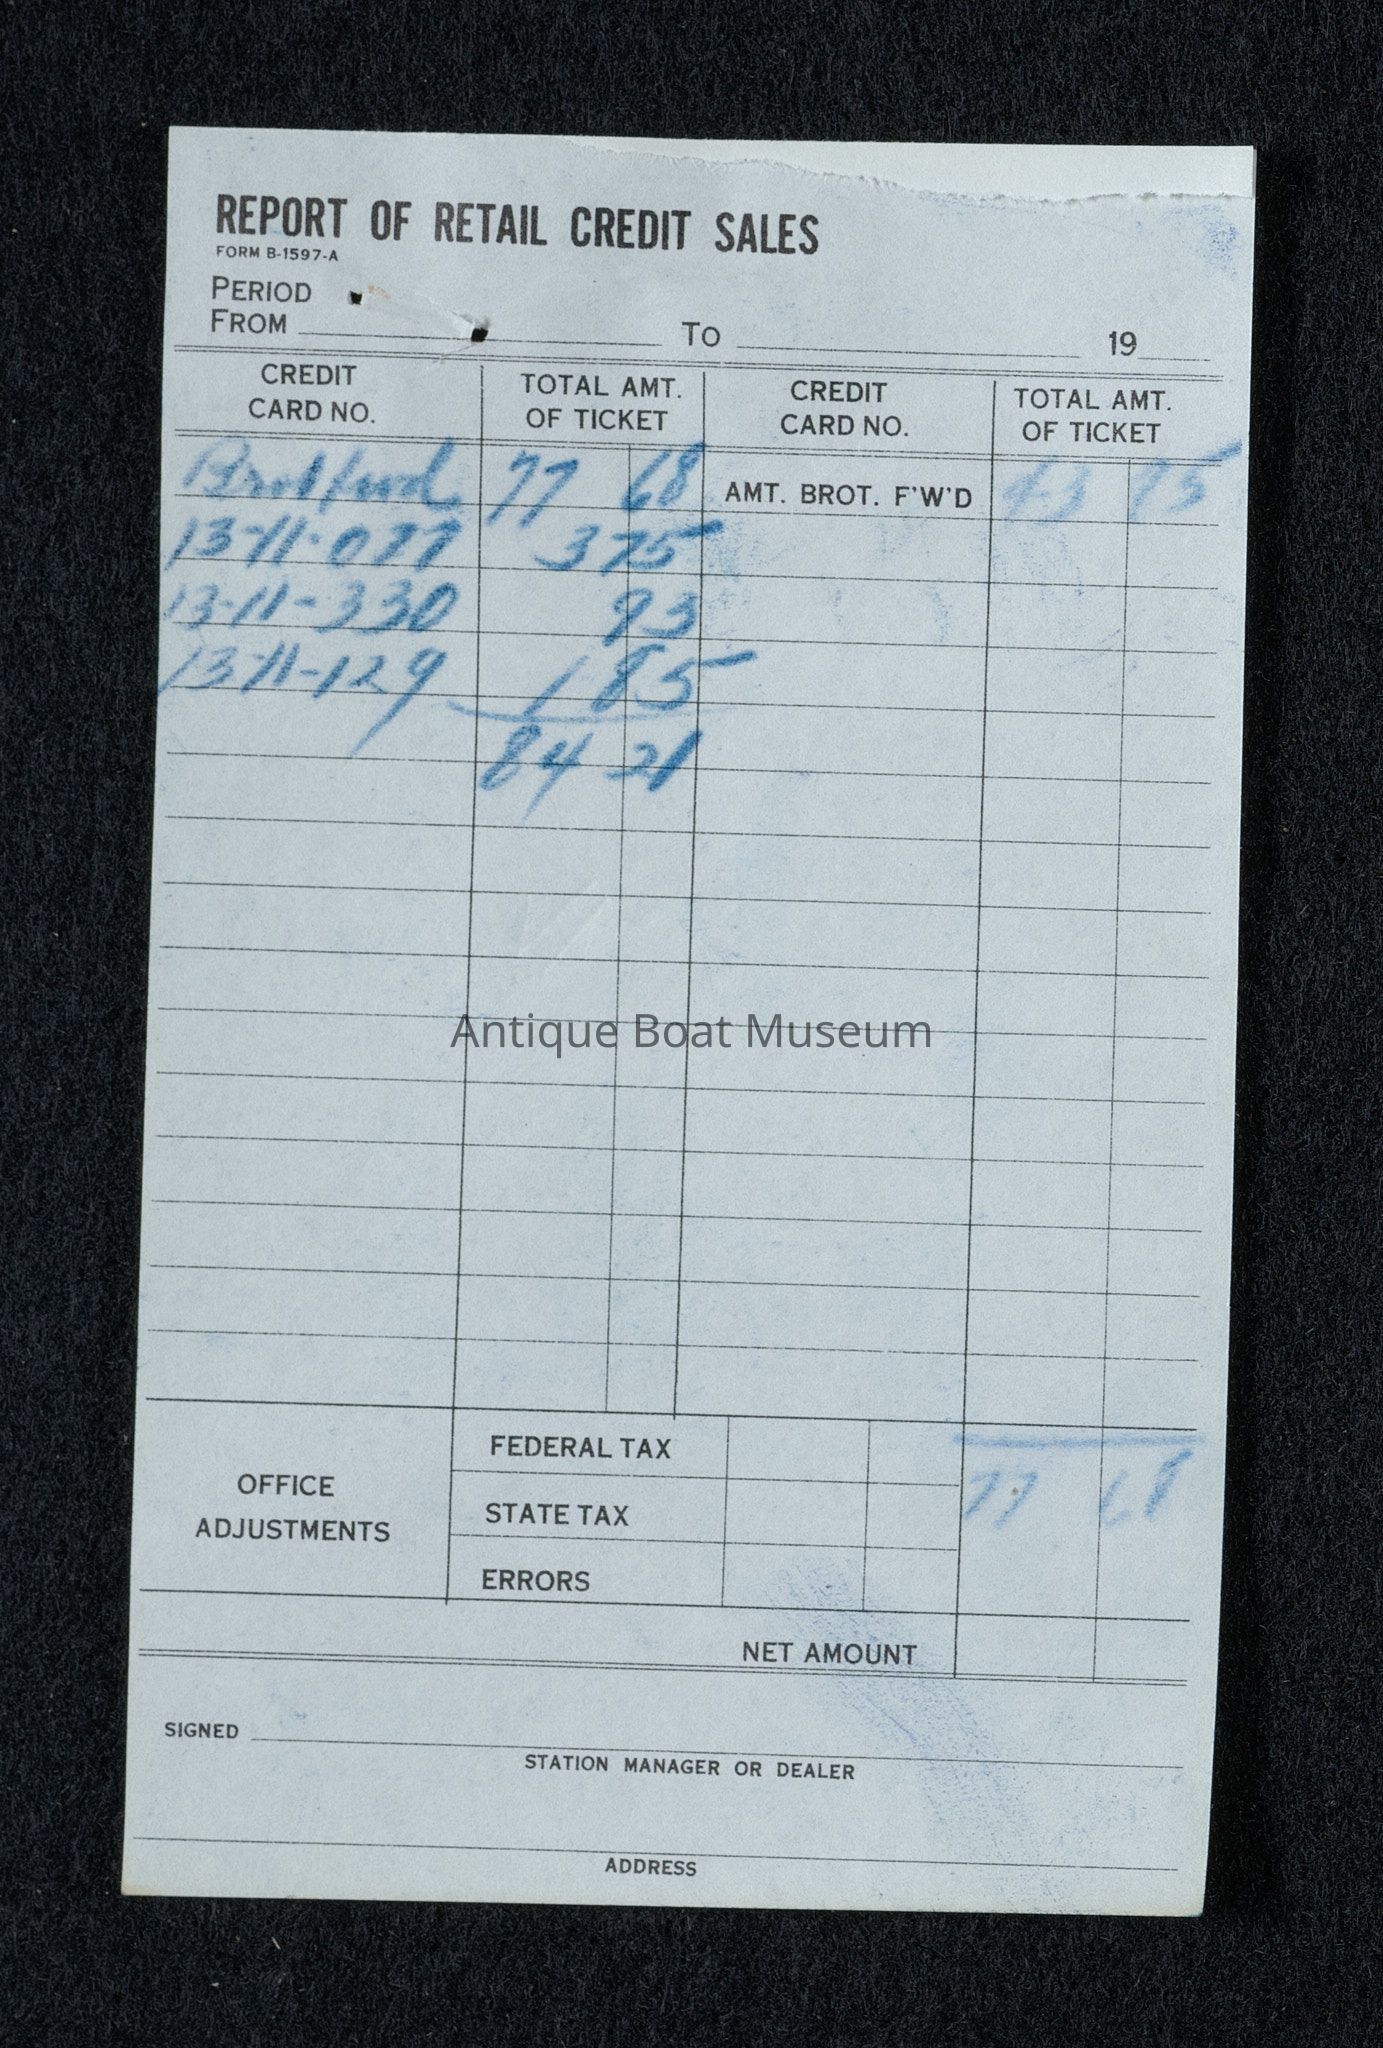 REPORT OF RETAIL CREDIT SALES
FORM B-1597-A
PERIOD
FROM TO 19
CREDIT CARD NO. TOTAL AMT. OF TICKET CREDIT CARD NO. TOTAL AMT. OF TICKET
77 68 AMT. BROT. F'W'D 43 95
13-11-077 3 75
13-11-330 93
13-11-129 1 85
84 21
Antique Boat Museum
FEDERAL TAX
77 68
OFFICE ADJUSTMENTS
STATE TAX
ERRORS
NET AMOUNT
SIGNED
STATION MANAGER OR DEALER
ADDRESS